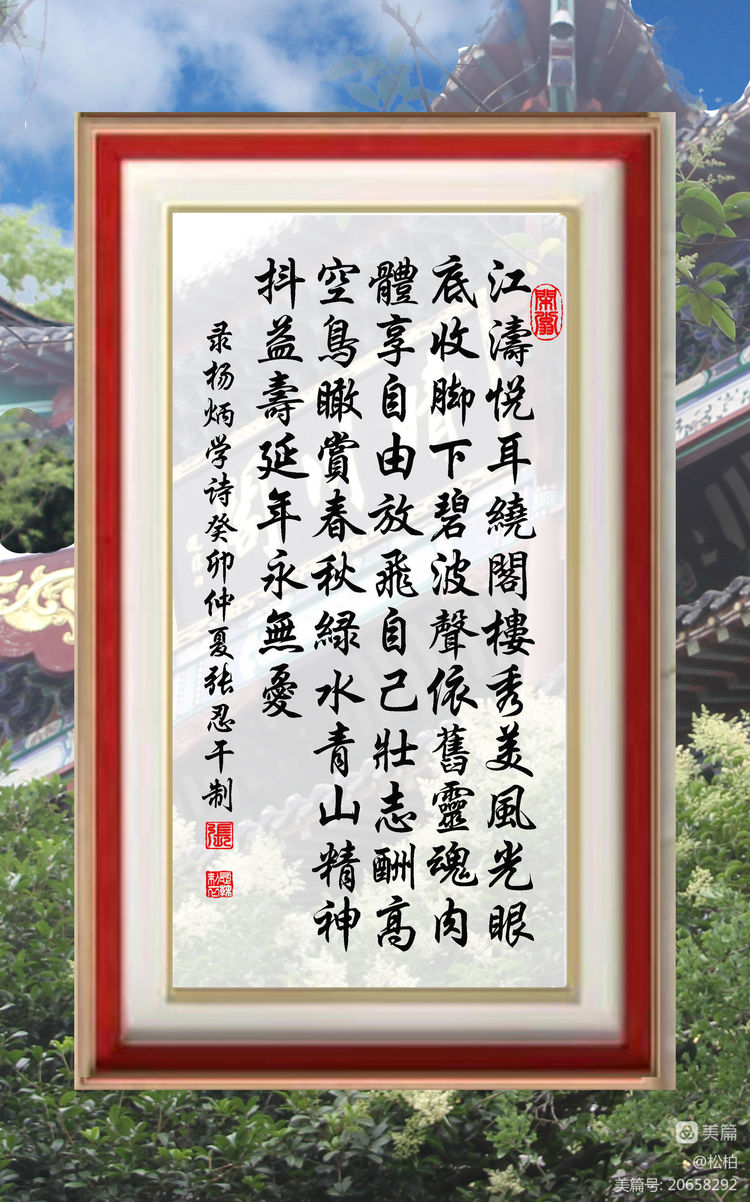 江濤悦耳繞閣樓秀美風光眼
底收脚下碧波聲依舊靈魂肉
體享自由放飛自己壯志酬高
空鳥瞰賞春秋緑水青山精神
抖益壽延年永無憂
录杨炳学诗癸卯仲夏张忍干制
張
美篇
@松柏
美篇号: 20658292